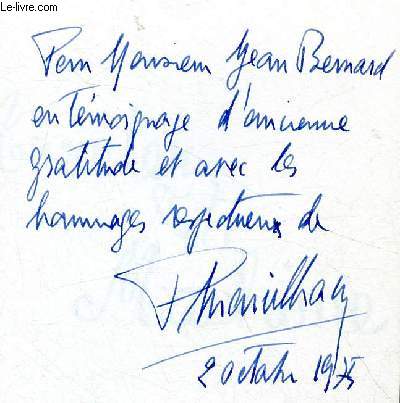 Le-livre.com
Pour Monsieur Jean Bernard
en témoignage d'ancienne
gratitude et avec les
hommages respectueux de
2 octobre 1975